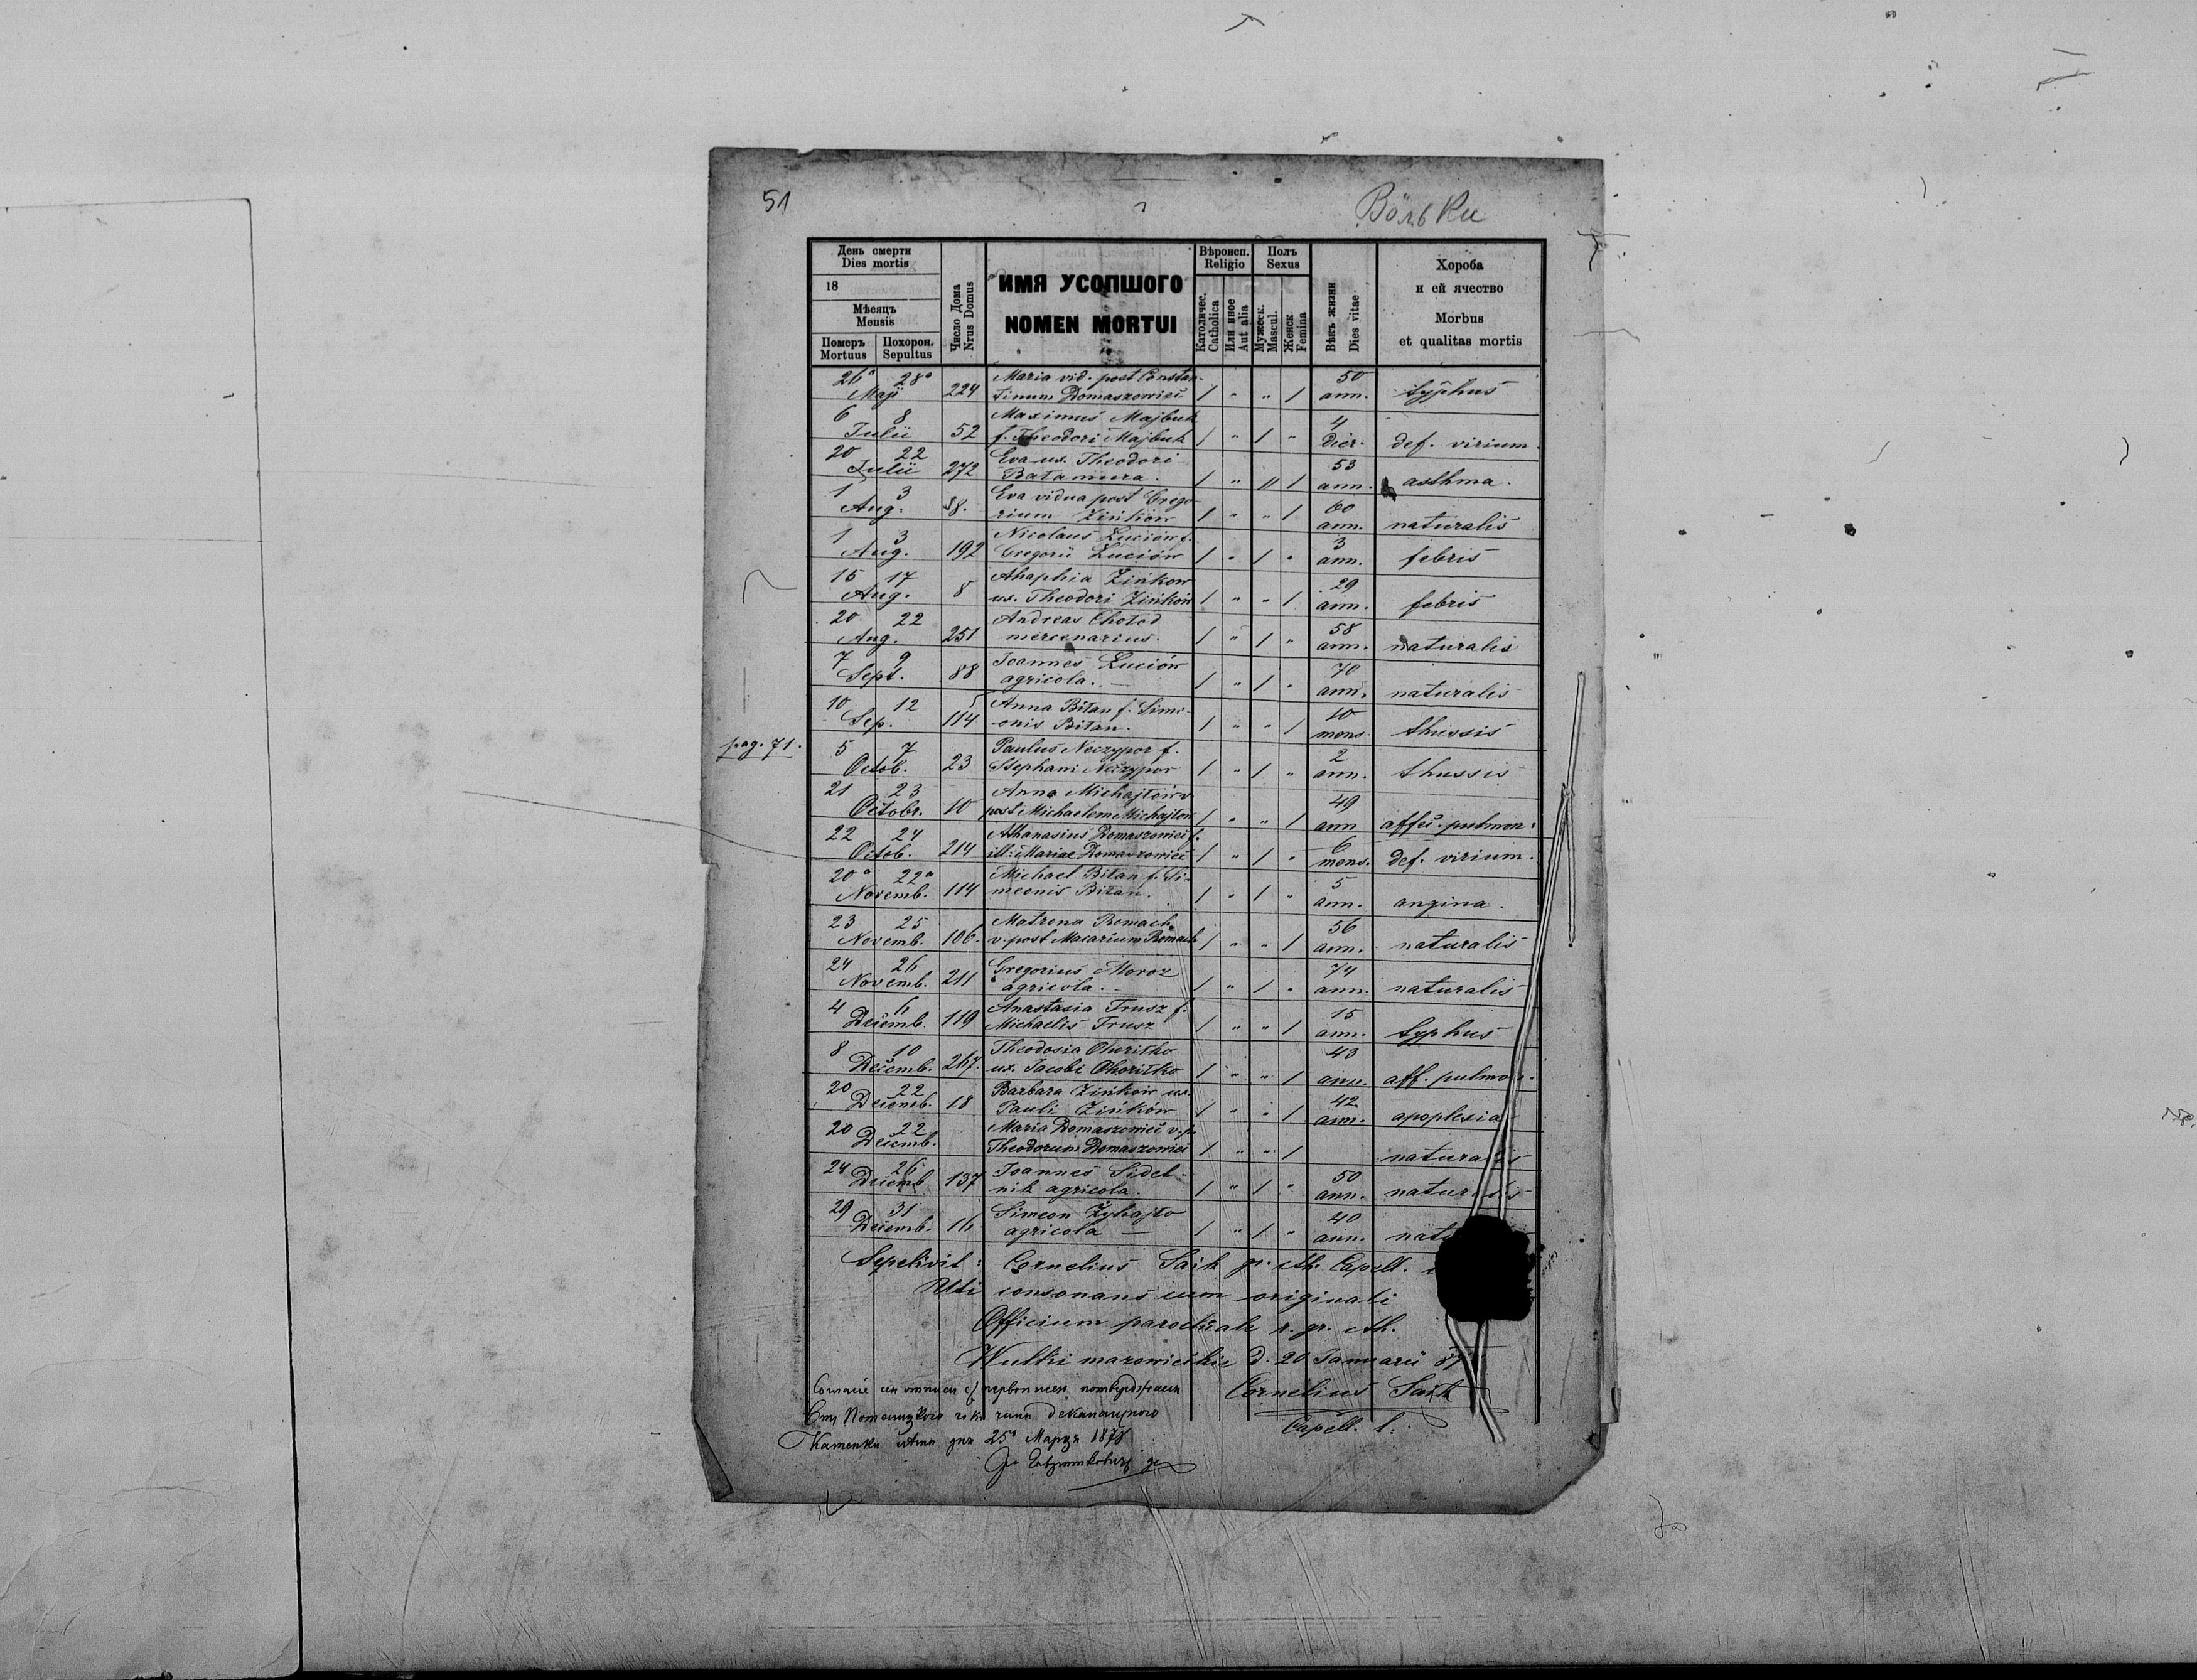 51
Вôльки
День смерти
Dies mortis
18
Мѣсяцъ
Mensis
Померъ Похорон.
Mortuus Sepultus
Число Дома
Nrus Domus
ИМЯ УСОПШОГО
NOMEN MORTUI
Вѣроисп.
Religio
Католичес.
Catholica
Или иное
Aut alia
Полъ
Sexus
Мужеск.
Mascul.
Женск
Femina
Вѣкъ жизни
Dies vitae
Хороба
и ей ячество
Morbus
et qualitas mortis
26ª 28ª Maria vid. post Constan- 50
Maji 224 tinum Domaszowicz 1 " " 1 ann. typhus
6 8 Maximus Majbuk 4
Julii 52 f. Theodori Majbuk 1 " 1 " dier. def. virium.
20 22 Eva ux. Theodori 53
Julii 272 Batamura. 1 " " 1 ann. asthma.
1 3 Eva vidua post Grego- 60
Aug. 88. rium Zińków 1 " " 1 ann. naturalis
1 3 Nicolaus Luciów f. 3
Aug. 192 Gregorii Luciów 1 " 1 " ann. febris
15 17 Ahaphia Zińkow 29
Aug. 8 ux. Theodori Zińków 1 " " 1 ann. febris
20 22 Andreas Chołod 58
Aug. 251 mercenarius. 1 " 1 " ann. naturalis
7 9 Joannes Luciów 70
Sept. 88 agricola. — 1 " 1 " ann. naturalis
10 12 Anna Bitan f. Sime- 10
Sep. 114 onis Bitan. 1 " " 1 mens. thussis
pag. 71.
5 7 Paulus Neczypor f. 2
Octob. 23 Stephani Neczypor 1 " 1 " ann. thussis
21 23 Anna Michajłów v. 49
Octobr. 10 post Michaelem Michajłów 1 " " 1 ann affec. pulmon:
22 24 Athanasius Domaszowicz f. 6
Octob. 214 ill: Mariae Domaszowicz 1 " 1 " mens. def. virium.
20ª 22ª Michael Bitan f. Si- 5
Novemb. 114 meonis Bitan. 1 " 1 " ann. angina.
23 25 Matrona Romach 56
Novemb. 106. v. post Macarium Romach 1 " " 1 ann. naturalis
24 26 Gregorius Moroz 74
Novemb. 211 agricola. — 1 " 1 " ann. naturalis
4 6 Anastasia Trusz f. 15
Decemb. 119 Michaelis Trusz 1 " " 1 ann. typhus
8 10 Theodosia 43
Decemb. 267. ux. Jacobi 1 " " 1 ann. aff. pulmon.
20 22 Barbara Zińków ux. 42
Decemb. 18 Pauli Zińków 1 " " 1 ann. apoplexia
20 22 Maria Domaszowicz v. p.
Decemb. Theodorum Domaszowicz 1 " " 1 naturalis
24 26 Joannes Sidel- 50
Decemb 137 nik agricola. 1 " 1 " ann. naturalis
29 31 Simeon Żyhajło 40
Decemb. 16 agricola — 1 " 1 " ann.
Sepelivit: Cornelius Saik gr. cth. Capell.
consonans cum originali
Officium parochiale r. gr. cth.
Wulki mazowieckie d. 20 Januarii
Cornelius Saik
Capell. l:
25º Марця 1878